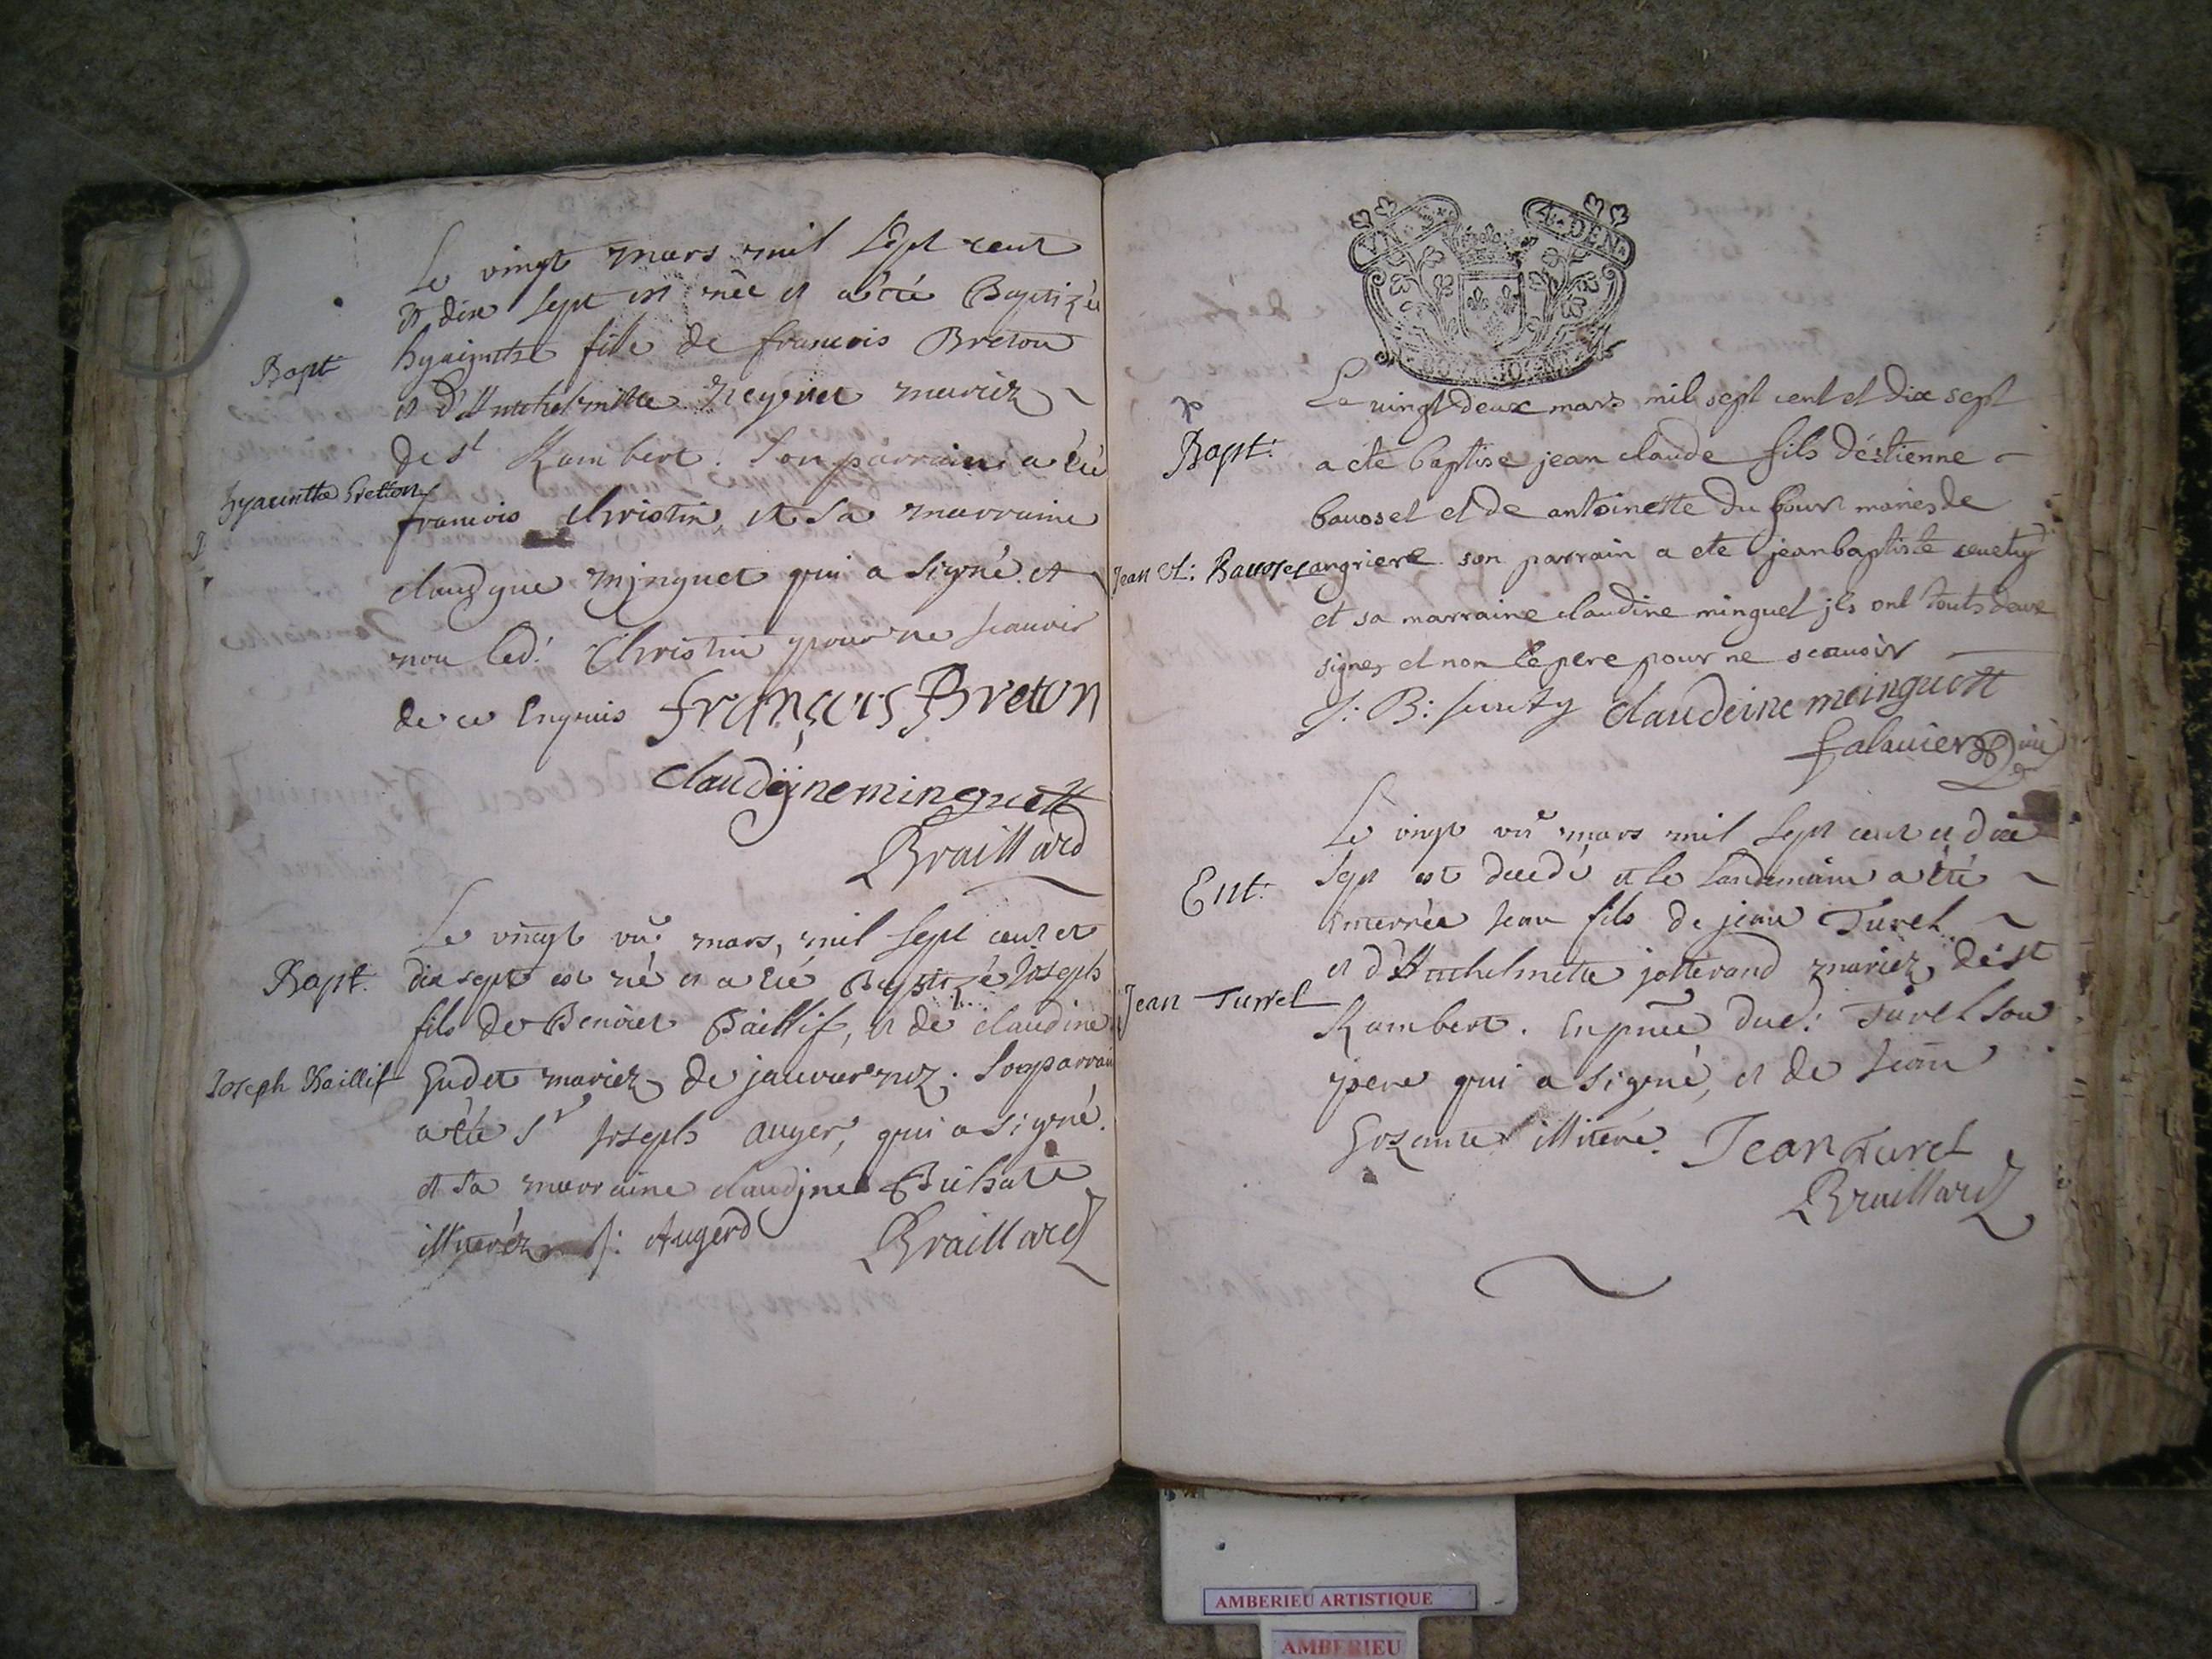 Le vingt mars mil sept cent
et dix sept est née et a été Baptizée
Bapt hyacinthe fille de francois Breton
et d'Anthelmette Reyvier mariez
de st Rambert. Son parrain a été
hyacinthe Bretton francois christin, et Sa marraine
claudyne mjnguet qui a signé et
non led: Christin pour ne scauoir
de ce Enquis françois Breton
claudijneminguett
Braillard
Le vingt un mars, mil sept cent et
Bapt. dix sept est né et a été Baptizé Joseph
fils de Benoiet Baillif, et de claudine
Joseph Baillif Gudet mariez de Son parrain
a été Sr Joseph auger, qui a signé.
et Sa marraine claudjne
illiterez J: Augerd Braillard
4. DEN.
Le vingt deux mars mil sept cent et dix sept
Bapt: a eté baptisé jean claude fils déstienne
bauosel et de antoinette du four mariés de
Jean Cl: Bauosel angriere son parrain a eté jean baptiste
et sa marraine claudine minguet jls ont touts deux
signez et non le pere pour ne scauoir
J: B: claudeine meinguett
falauier
Le vingt un mars mil sept cent et dix
Ent: sept est decedé et le landemain a été
enterrée Jean fils de jean Turel
et d'Anthelmette jotterand mariez de st
Jean Turrel Rambert. En pnce dud: Turel son
pere qui a signé, et de Jean
illiteré. Jean Turel
Braillard
AMBERIEU ARTISTIQUE
AMBERIEU